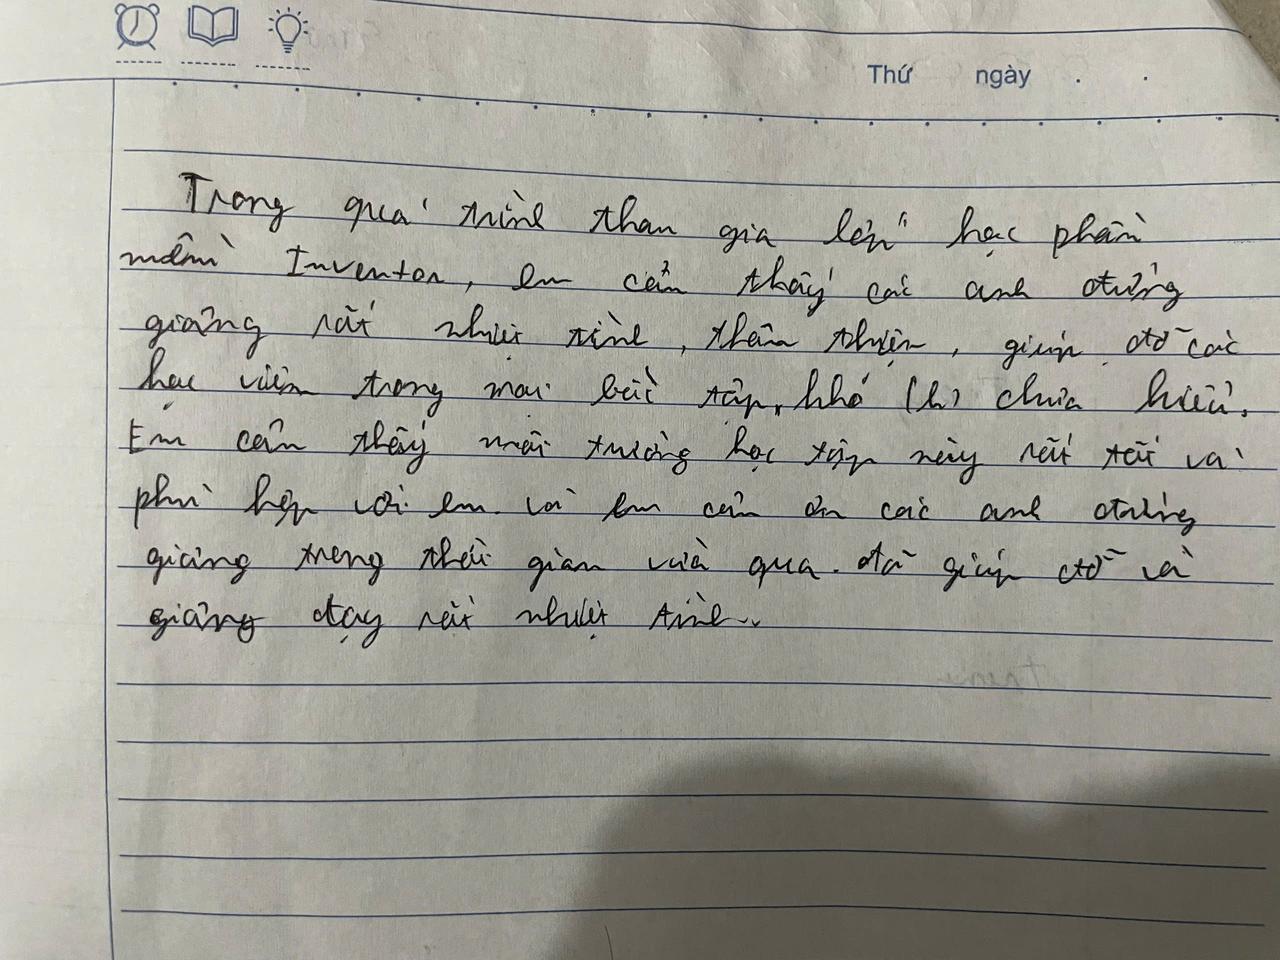 Thứ ngày
Trong quá trình tham gia lớp học phần
mềm Inventor, em cảm thấy các anh đứng
giảng rất nhiệt tình, thân thiện, giúp đỡ các
học viên trong mọi bài tập, khó chưa hiểu.
Em cảm thấy môi trường học tập này rất tốt và
phù hợp với em. Và em cảm ơn các anh đứng
giảng trong thời gian vừa qua. đã giúp đỡ và
giảng dạy rất nhiệt tình..